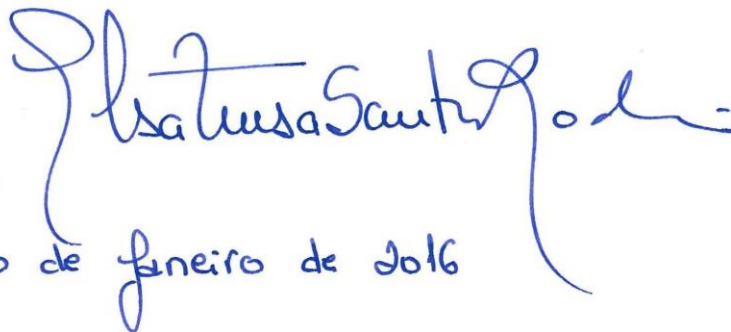 Elsa Teresa Santos Rod
de Janeiro de 2016